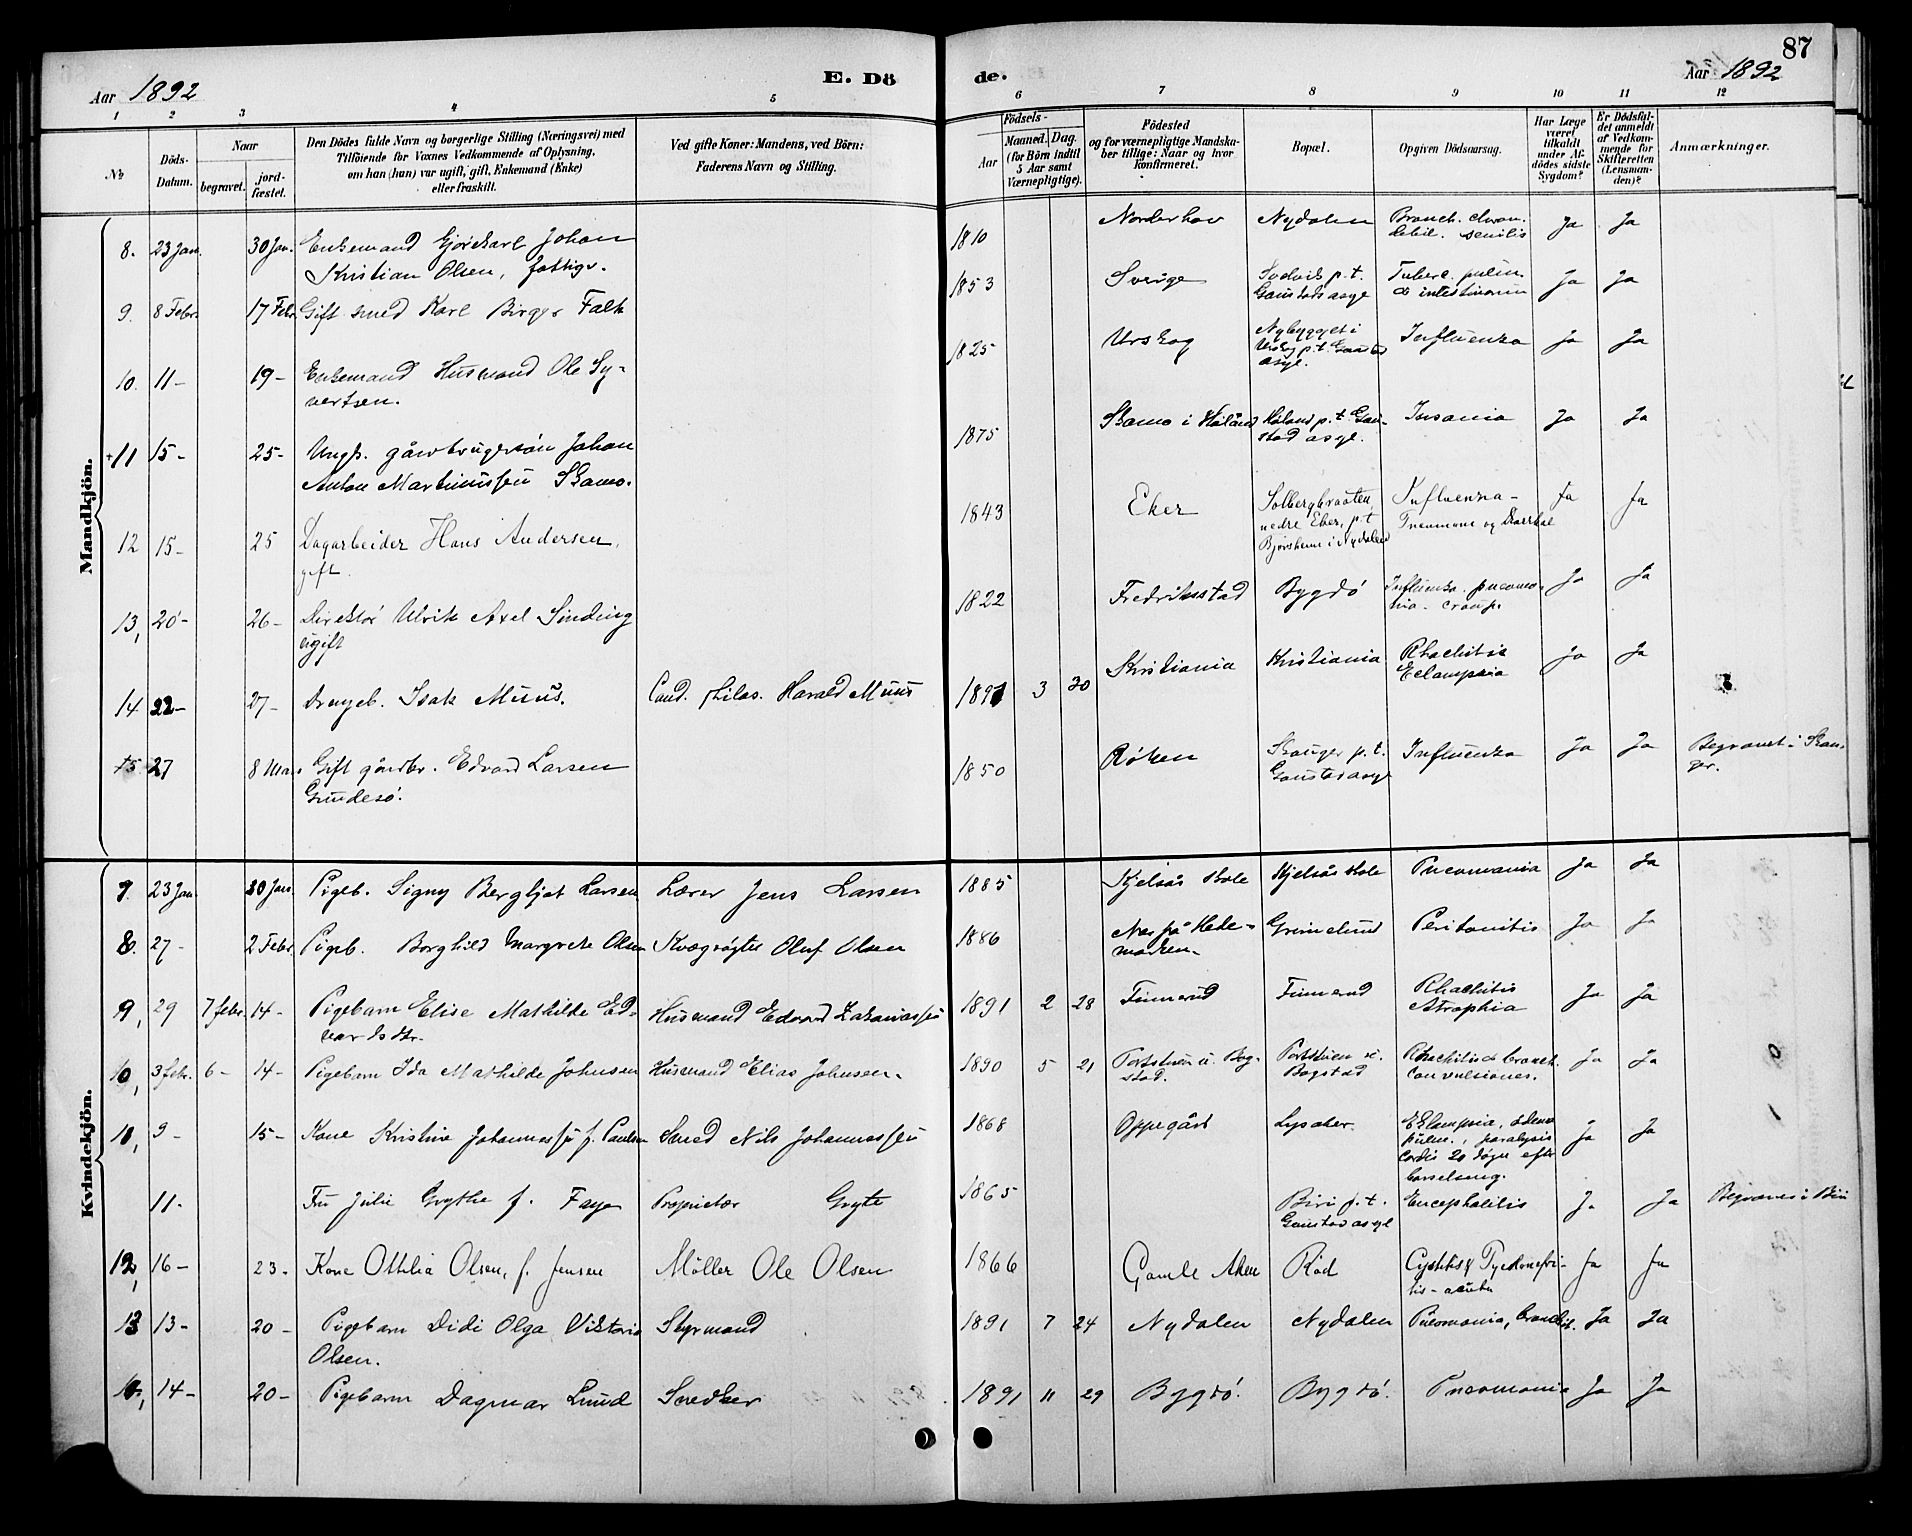 87
Aar 1892
E. Dö
de.
Aar 1892
1 2 3 4 5 6 7 8 9 10 11 12
No
Döds-Datum.
Naar
begravet.
jordfæstet.
Den Dödes fulde Navn og borgerlige Stilling (Næringsvei) med
Tilföiende for Voxnes Vedkommende af Oplysning,
om han (hun) var ugift, gift, Enkemand (Enke)
eller fraskilt.
Ved gifte Koner: Mandens, ved Börn:
Faderens Navn og Stilling.
Födsels-
Aar
Maaned. Dag.
(for Börn indtil
5 Aar samt
Værnepligtige).
Födested
og for værnepligtige Mandska-
ber tillige: Naar og hvor
konfirmeret.
Bopæl.
Opgiven Dödsaarsag.
Har Læge
været
tilkaldt
under Af-
dödes sidste
Sygdom?
Er Dödsfal-
det anmeldt
af Vedkom-
mende for
Skifteretten
(Lensman-
den)?
Anmærkninger.
Mandkjön.
8. 23 Jan. 30 Jan. Enkemand Johan
Kristian Olsen, fattigv. 1810 Norderhov Nydalen Bronch. chron.
debil. senilis Ja Ja
9. 8 Febr. 17 Febr. Gift smed Karl Birger Falk 1853 Sverige Svelvik p.t.
Gaustads asyl Tuberc. pulm.
& intestinorum Ja Ja
10. 11- 19- Enkemand Husmand Ole Sy-
vertsen. 1825 Urskog Nybygget i
Urskog p.t. Gaustad
asyl. Influenza Ja Ja
+11 15- 25- Ungk. gårdbrugersøn Johan
Anton Martinussen Skamo. 1875 Skamo i Høland Høland p.t. Gau-
stad asyl. Insania Ja Ja
12 15- 25 Dagarbeider Hans Andersen,
gift. 1843 Eker Solbergbraaten,
nedre Eker, p.t.
Bjørsheim i Nydalen Influenza-
Pneumoni og Diarrhoe Ja Ja
13, 20- 26- Direktør Ulrik Axel Sinding
ugift 1822 Fredrikstad Bygdø Influenza-pneumo-
nia-croup. Ja Ja
14 22- 27- Drengeb. Isak Muus. Cand. philos. Harald Muus 1891 3 30 Kristiania Kristiania Rhachitis
Eclampsia Ja Ja
+5. 27 8 Mars Gift gårdbr. Edvard Larsen
Gundesø. 1850 Røken Skauger p.t.
Gaustad asyl Influenza Ja Ja Begravet i Skau-
ger.
Kvindekjön.
7. 23 Jan. 30 Jan. Pigeb. Signy Bergljot Larsen Lærer Jens Larsen 1885 Kjelsås Skole Kjelsås skole Pneumonia Ja Ja
8. 27- 2 Febr. Pigeb. Borghild Margrete Olsen Kvægrøgter Oluf Olsen 1886 Nes på Hede-
marken- Grimelund Peritonitis Ja Ja
9, 29 7 febr. 14- Pigebarn Elise Mathilde Ed-
vardsdtr. Husmand Edvard Zakariassen 1891 2 28 Finnerud Finnerud Rhachitis
Atrophia Ja Ja
10, 3 febr. 6- 14- Pigebarn Ida Mathilde Johnsen Husmand Elias Johnsen. 1890 5 21 Portstuen u. Bog-
stad. Portstuen u.
Bogstad Rhachitis & bronch.
Convulsiones. Ja Ja
11, 9- 15- Kone Kristine Johannessen f. Paulsen Smed Nils Johannessen 1868 Oppegård Lysaker. Eklampsia, ødema
pulm., paralysis
cordis 20 døgn efter
barselseng. Ja Ja
11- Fru Julie Grythe f. Faye Proprietær Gryte 1865 Biri p.t.
Gaustad asyl Encephalitis Ja Ja Begraves i Biri
12, 16- 23- Kone Othilia Olsen, f. Jensen Møller Ole Olsen 1866 Gamle Aker Rød Cystitis & Pyelonefri-
tis-acuta Ja Ja
13 13- 20- Pigebarn Didi Olga Viktoria
Olsen. Styrmand 1891 7 24 Nydalen Nydalen Pneumonia, bronchit. Ja Ja
14- 20- Pigebarn Dagmar Lund Snedker 1891 11 29 Bygdø. Bygdø. Pneumonia Ja Ja